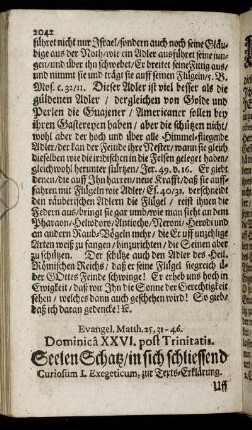 2042
führet nicht nur Israel/sondern auch noch seine Gläu-
bige aus der Noth/wie ein Adler ausführet seine jun-
gen/und über ihn schwebet/ Er breitet seine Fittig aus/
und nimmt sie und trägt sie auff seinen Flügeln/5. B.
Mos. c. 32/11. Dieser Adler ist viel besser als die
güldenen Adler / dergleichen von Golde und
Perlen die Guajener / Americaner sollen bey
ihren Gastereyen haben / aber die schützen nicht/
wohl aber der hoch und über alle Himmel fliegende
Adler/der kan der Feinde ihre Nester/wann sie gleich
dieselben wie die irrdischen in die Felsen geleget haben/
gleichwohl herunter stürtzen/Jer. 49. v.16. Er giebt
denen/die auff Ihn harren/neue Krafft/daß sie auff-
fahren mit Flügeln wie Adler/Es. 40/31. verschneidt
den räuberischen Adlern die Flügel / reist ihnen die
Federn aus/bringt sie gar umb/wie man siehet an dem
Pharaon/Heliodoro/Antiocho/Neroni/Herodi und
an andern Raub-Vögeln mehr/ die Er uff unzehlige
Arten weiß zu fangen / hinzurichten / die Seinen aber
zu schützen. Der schütze auch den Adler des Heil.
Römischen Reichs / daß er seine Flügel siegreich ü-
ber GOttes Feinde schwinge! Er erheb uns hoch in
Ewigkeit / daß wir Ihn die Sonne der Gerechtigkeit
sehen / welches dann auch geschehen wird! So gieb/
daß ich daran gedencke! &c.
Evangel. Matth. 25, 31-46.
Dominicâ XXVI. post Trinitatis.
Seelen Schatz/in sich schliessend
Curiosum I. Exegeticum, zur Texts-Erklärung.
Uff